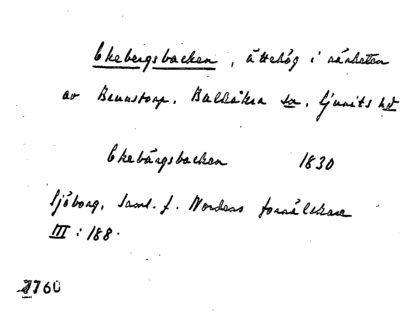 Ekebergsbacken, ättehög i närheten
av Bennstorp, Balkåkra sn, Ljunits hd
Ekebärgsbacken 1830
Sjöborg, Saml. f. Nordens fornälskare
III : 188.
2760